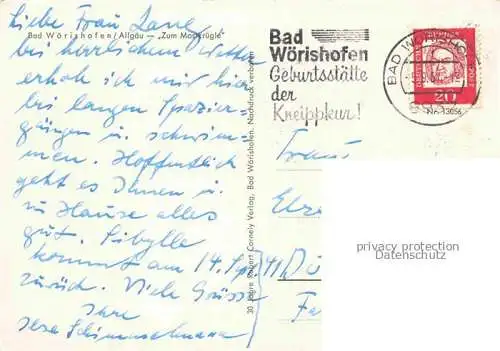 Liebe Frau Lane,
Bad Wörishofen/Allgäu — „Zum Mostkrügle"
bei herrlichem Wetter
erhole ich mich hier
bei langen Spazier-
gängen u. schwim-
men. Hoffentlich
geht es Ihnen u.
zu Hause alles
gut. Sibylle
kommt am 14. Sept.
zurück. Viele Grüsse
Ihre
30 Jahre Robert Cornely Verlag, Bad Wörishofen. Nachdruck verboten
Bad
Wörishofen
Geburtsstätte
der
Kneippkur!
BAD WÖRISHOFEN
20
Nr. 13056
Frau
privacy protection
Datenschutz